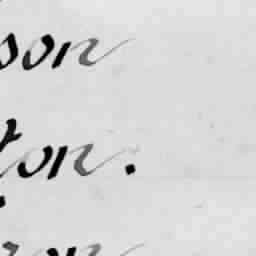 son
ton.